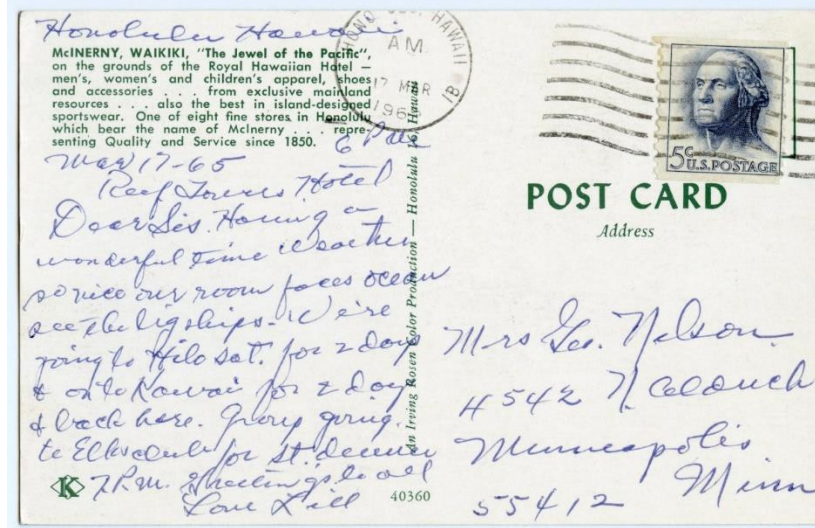 Honolulu Hawaii
McINERNY, WAIKIKI, "The Jewel of the Pacific",
on the grounds of the Royal Hawaiian Hotel —
men's, women's and children's apparel, shoes
and accessories . . . from exclusive mainland
resources . . . also the best in island-designed
sportswear. One of eight fine stores in Honolulu
which bear the name of McInerny . . . repre-
senting Quality and Service since 1850.
6 P.M.
Mar 17-65
Reef Towers Hotel
Dear Sis. Having a
wonderful time weather
so nice our room faces ocean
see the big ships. We're
going to Hilo Sat. for 2 days
& on to Kawai for 2 day
& back here. Group going
to Elks club for st. dinner
7 P.M. Greetings to all
Love Lill
K
40360
An Irving Rosen Color Production — Honolulu 16, Hawaii
HAWAII
AM
17 MAR
196
1B
5¢
U.S. POSTAGE
POST CARD
Address
Mrs Geo. Nelson.
4542 N.
Minneapolis
Minn
55412